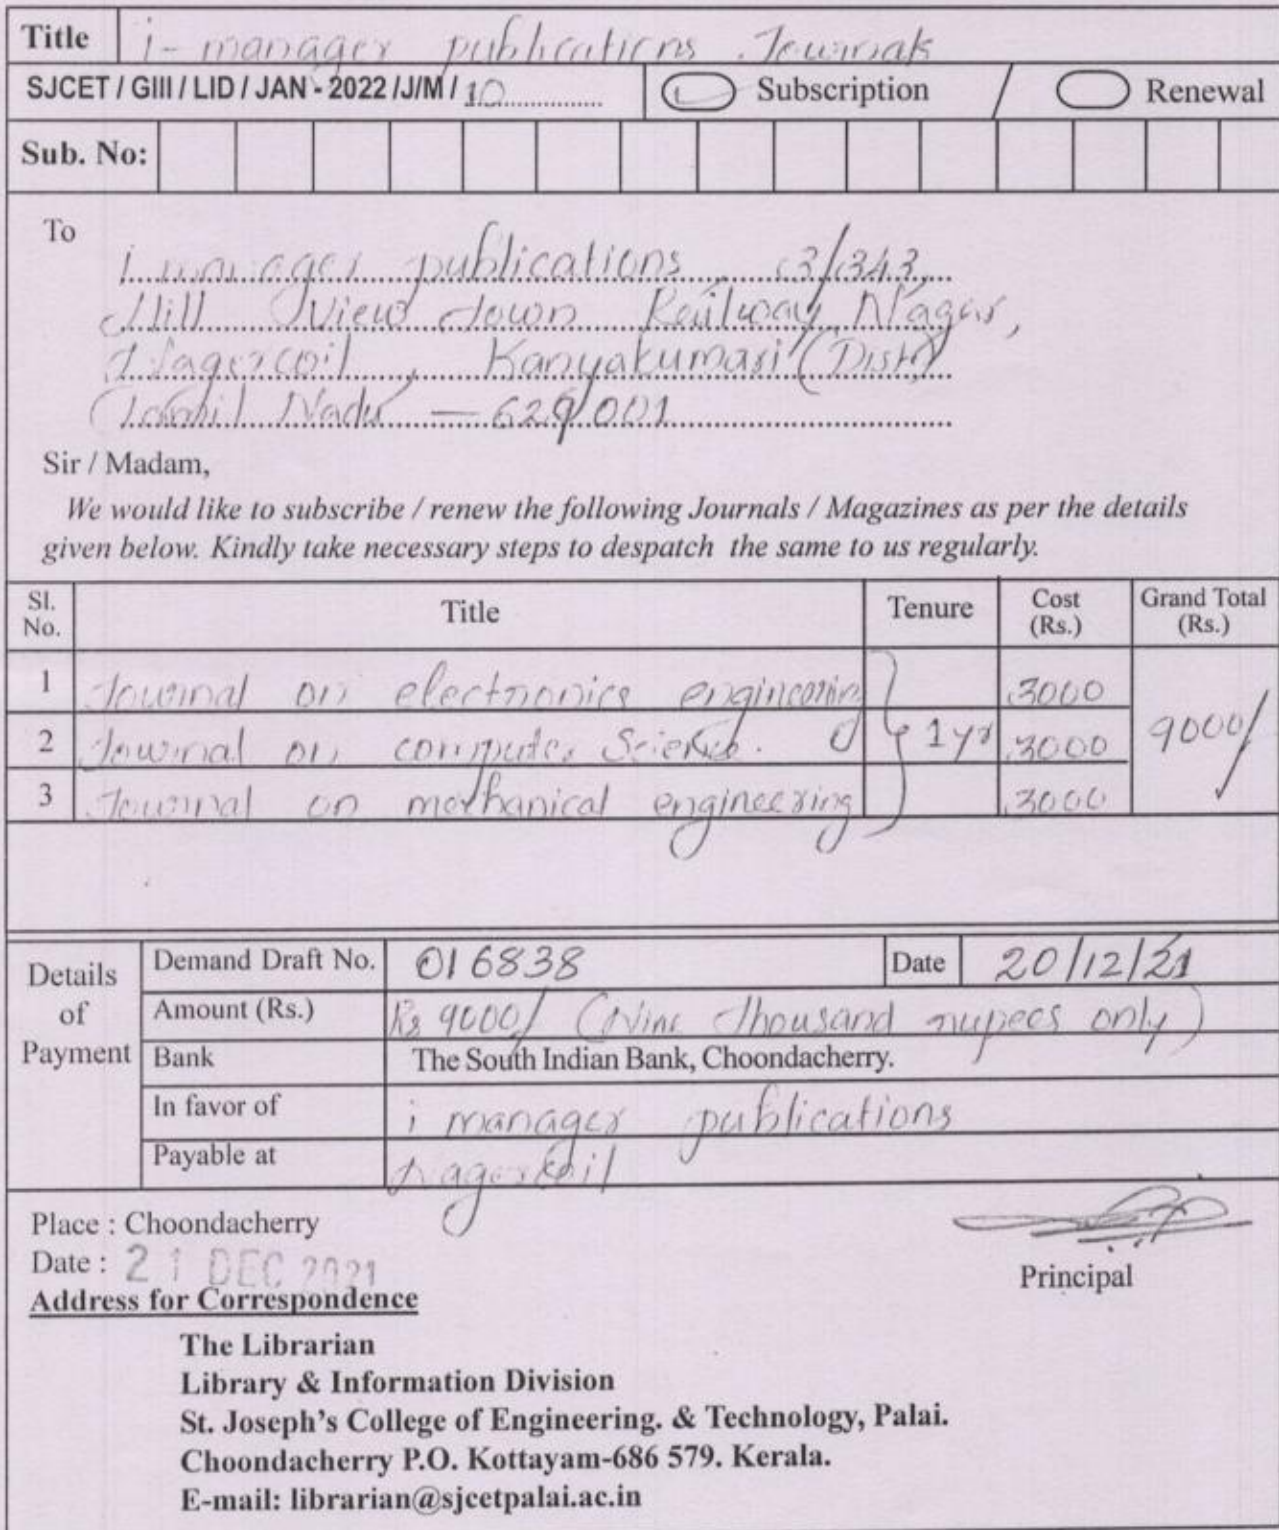 Title i-manager publications Journals
SJCET / GIII / LID / JAN - 2022 /J/M / 10 Subscription / Renewal
Sub. No:
To
i manager publications, 3/343,
Hill View Town Railway Nagar,
Nagercoil, Kanyakumari (Dist)
Tamil Nadu — 629 001
Sir / Madam,
We would like to subscribe / renew the following Journals / Magazines as per the details
given below. Kindly take necessary steps to despatch the same to us regularly.
Sl. No. Title Tenure Cost (Rs.) Grand Total (Rs.)
1 Journal on electronics engineering 3000
2 Journal on computer Science. 1 yr 3000 9000/
3 Journal on mechanical engineering 3000
Details of Payment
Demand Draft No. 016838 Date 20/12/21
Amount (Rs.) Rs 9000/ (Nine thousand rupees only)
Bank The South Indian Bank, Choondacherry.
In favor of i manager publications
Payable at Nagerkoil
Place : Choondacherry
Date : 21 DEC 2021
Principal
Address for Correspondence
The Librarian
Library & Information Division
St. Joseph's College of Engineering. & Technology, Palai.
Choondacherry P.O. Kottayam-686 579. Kerala.
E-mail: librarian@sjcetpalai.ac.in